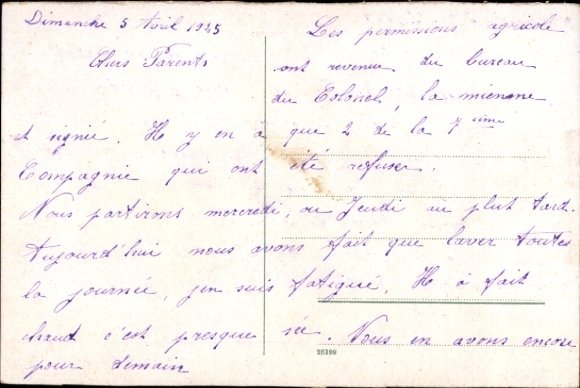 Dimanche 5 Avril 1925
Chers Parents
Les permissions agricole
ont revenue du bureau
du Colonel, la mienne
et signée. Il y en à que 2 de la 7 ième
Compagnie qui ont été refuse.
Nous partirons mercredi, ou Jeudi au plut tard.
Aujourd'hui nous avons fait que laver toutes
la journée, jen suis fatigué, Il à fait
chaud c'est presque sée. Nous en avons encore
pour demain
25199